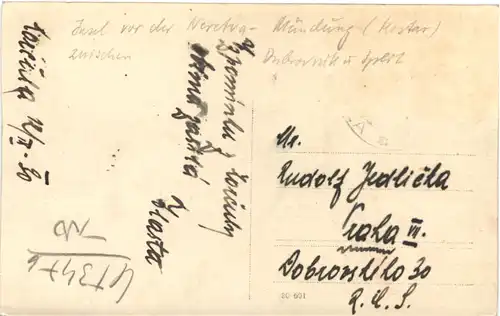 Insel vor der Neretva - Mündung (Mostar)
zwischen Dubrovnik u Split
Korčula
Vzpomínku z Korčuly
Vlasta
Mr.
Rudolf Jedlička
Praha VII.
Dobrovského 30
R.Č.S.
20 601